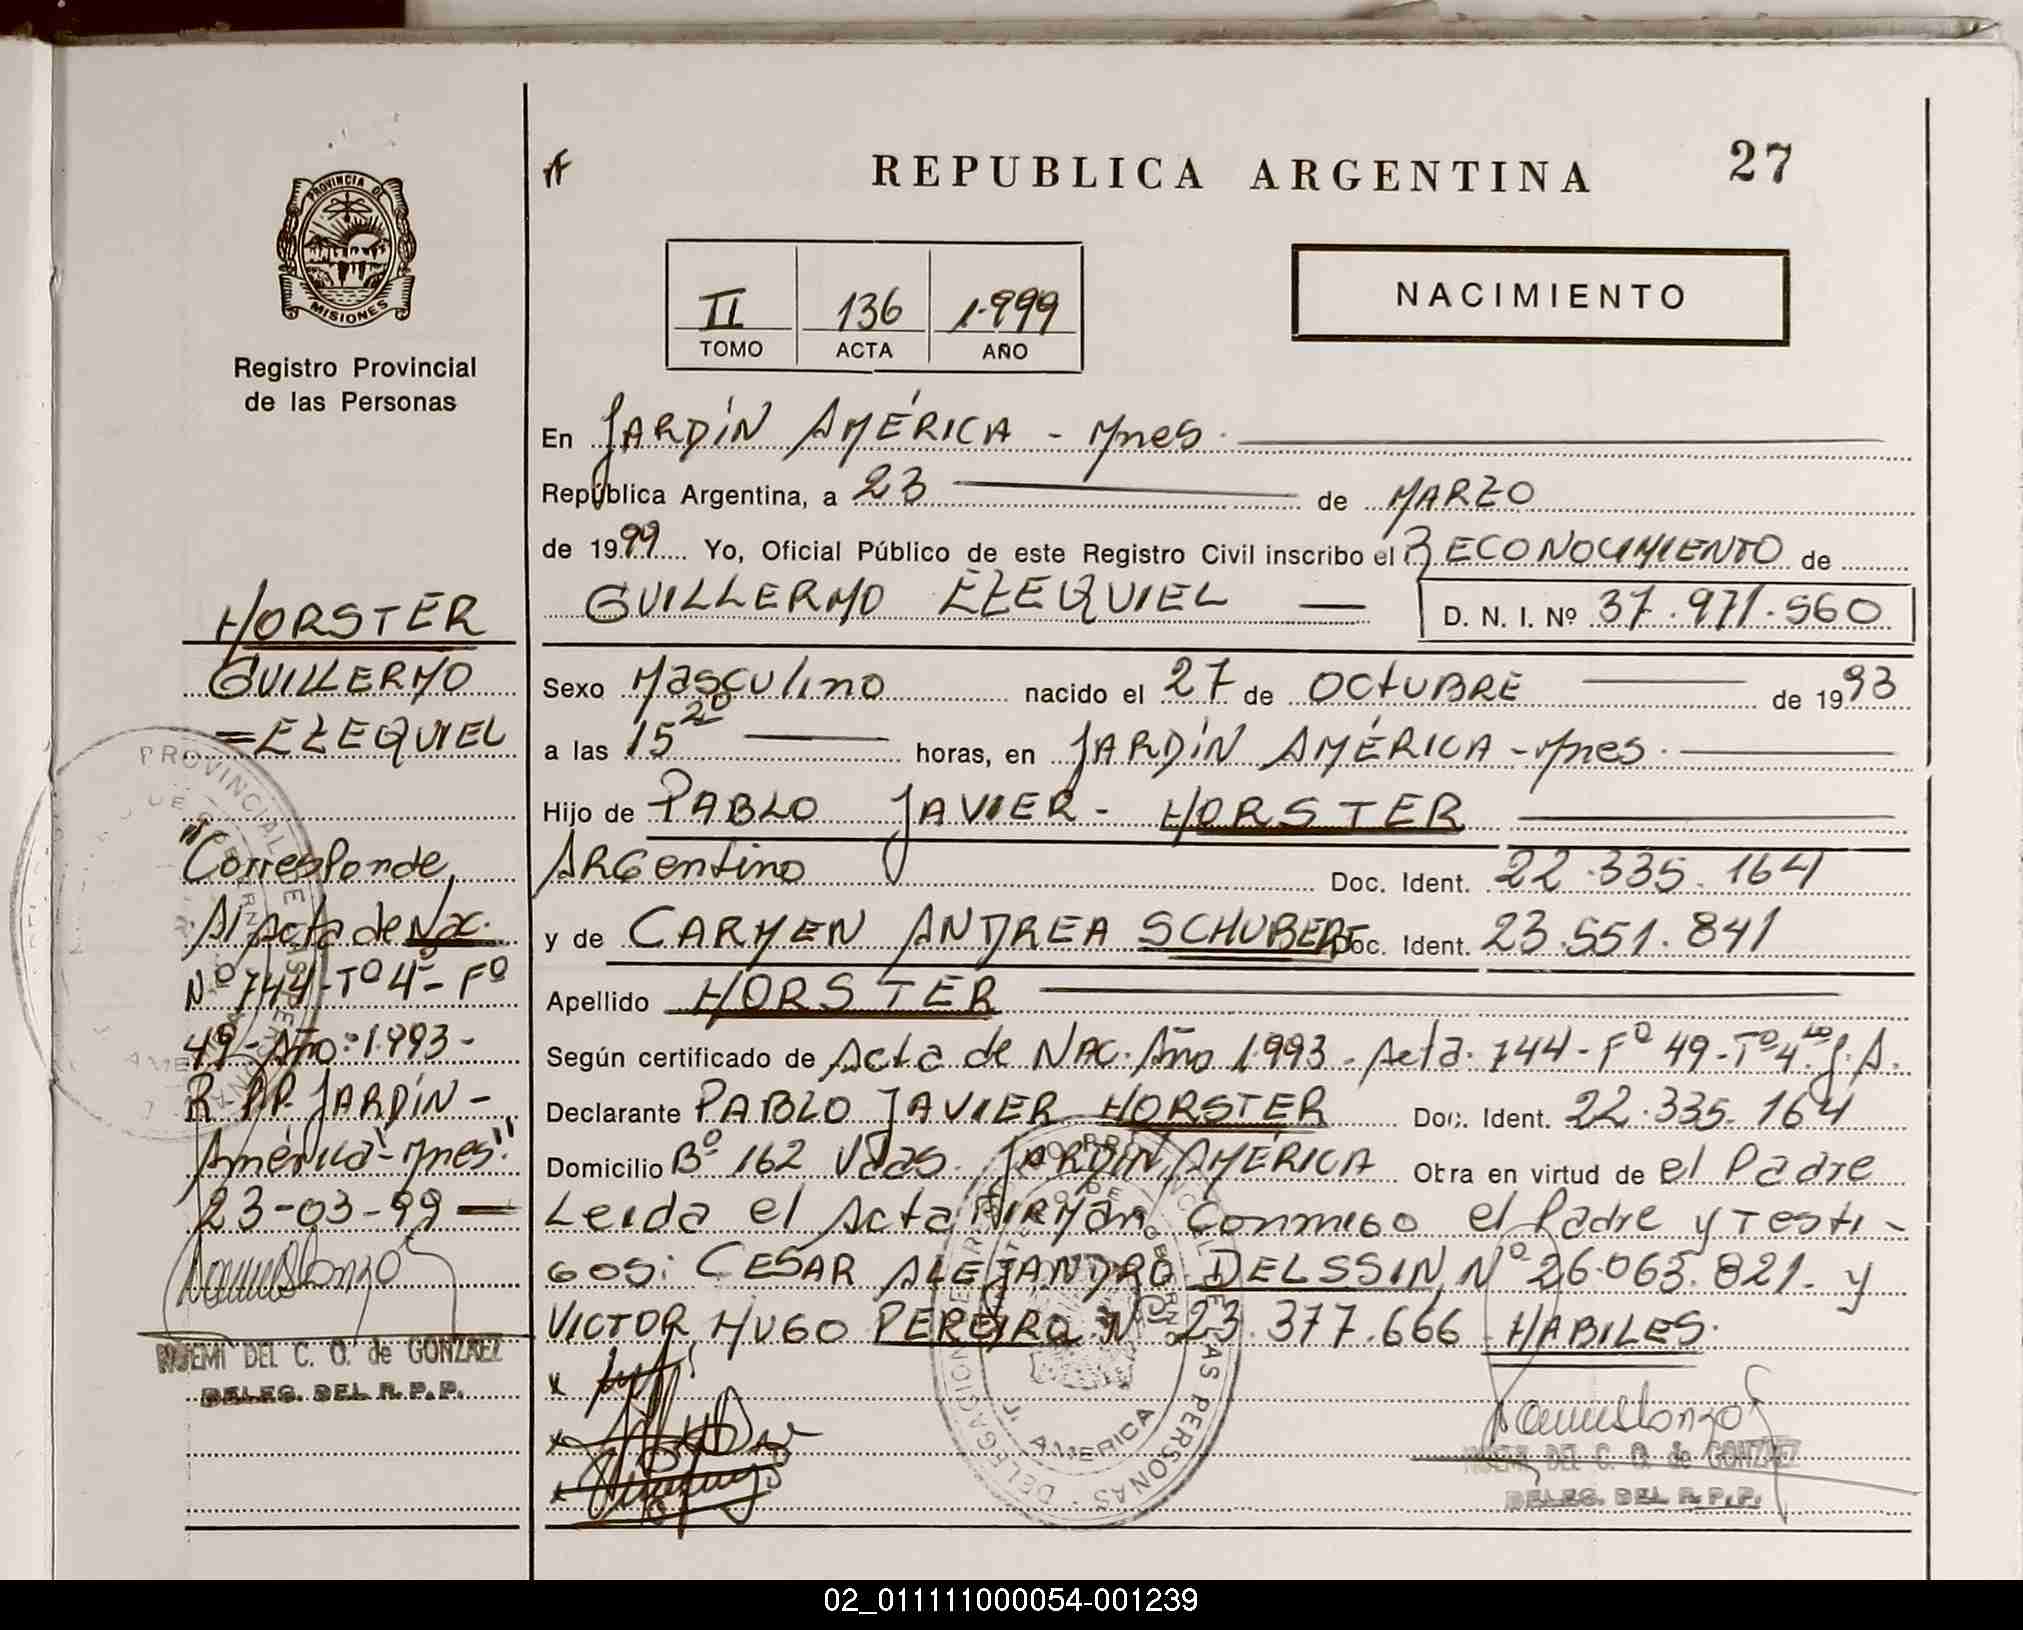 REPUBLICA ARGENTINA 27
PROVINCIA DE
MISIONES
Registro Provincial
de las Personas
II 136 1.999
TOMO ACTA AÑO
NACIMIENTO
En JARDÍN AMÉRICA - Mnes.
República Argentina, a 23 de MARZO
de 1999 Yo, Oficial Público de este Registro Civil inscribo el RECONOCIMIENTO de
GUILLERMO EZEQUIEL D. N. I. Nº 37.971.560
Sexo Masculino nacido el 27 de OCTUBRE de 1993
a las 15 20 horas, en JARDÍN AMÉRICA - Mnes.
Hijo de PABLO JAVIER - HORSTER
ARGentino Doc. Ident. 22.335.164
y de CARMEN ANDREA SCHUBERT Doc. Ident. 23.551.841
Apellido HORSTER
Según certificado de Acta de NAC. Año 1.993 - Acta. 744 - Fº 49 - Tº 4º J. A.
Declarante PABLO JAVIER HORSTER Doc. Ident. 22.335.164
Domicilio Bº 162 Vdas. JARDÍN AMÉRICA Obra en virtud de el Padre
Leida el Acta FIRMAN Conmigo el Padre y Testi-
gos: CESAR ALEJANDRO DELSSIN Nº 26.063.821. y
VICTOR HUGO PEREIRA Nº 23.377.666 HABILES.
x
x
x
DEL C. O. de GONZALEZ
DELEG. DEL R.P.P.
HORSTER
GUILLERMO
=EZEQUIEL
"Corresponde
Al Acta de Nac.
Nº 744 - Tº 4º - Fº
49 - Año: 1.993 -
R.P.P. JARDÍN -
América - Mnes".
23-03-99
NOEMI DEL C. O. de GONZALEZ
DELEG. DEL R.P.P.
PROVINCIAL DE LAS PERSONAS
AMERICA
DELEGACION
02_011111000054-001239